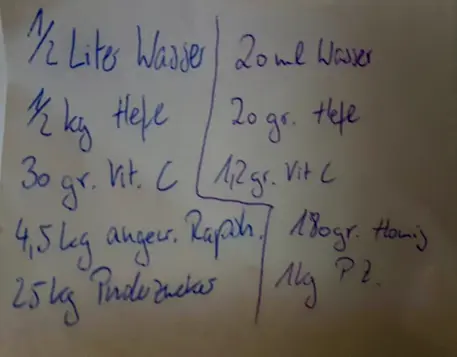 1/2 Liter Wasser 20 ml Wasser
1/2 kg Hefe 20 gr. Hefe
30 gr. Vit. C 1,2 gr. Vit C
4,5 kg angew. Rapsh. 180 gr. Honig
25 kg Puderzucker 1 kg P Z.